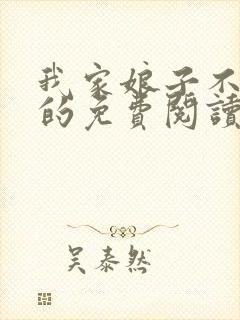 我家娘子不
的免費閱讀
吴泰然